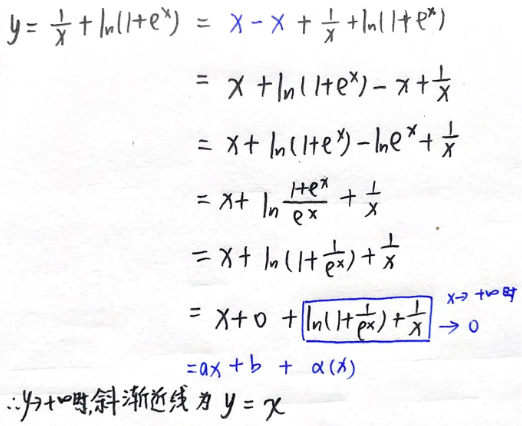 y = 1/x + ln(1+eˣ) = x - x + 1/x + ln(1+eˣ)
= x + ln(1+eˣ) - x + 1/x
= x + ln(1+eˣ) - lneˣ + 1/x
= x + ln (1+eˣ)/eˣ + 1/x
= x + ln(1+1/eˣ) + 1/x
= x + 0 + ln(1+1/eˣ) + 1/x → 0 x→+∞时
= ax + b + α(x)
∴y→+∞时,斜渐近线为 y = x